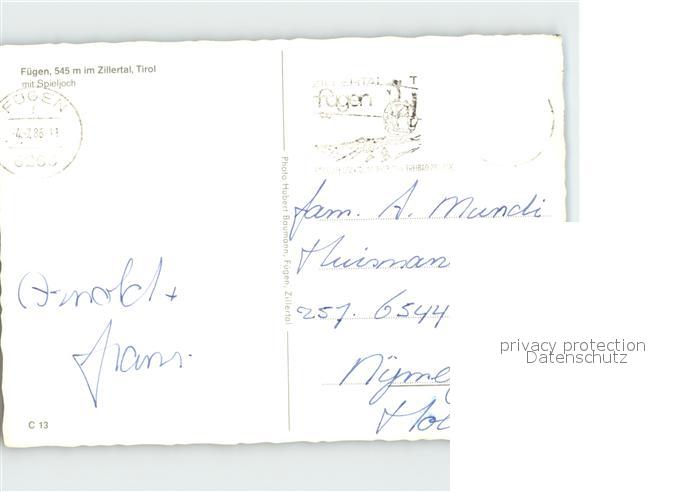 Fügen, 545 m im Zillertal, Tirol
mit Spieljoch
FÜGEN
ZILLERTAL
fügen
Photo Hubert Baumann, Fügen, Zillertal
fam. A. Mundi
Huisman
257. 6544
Nijme
Hol
Arnold +
frans.
C 13
privacy protection
Datenschutz